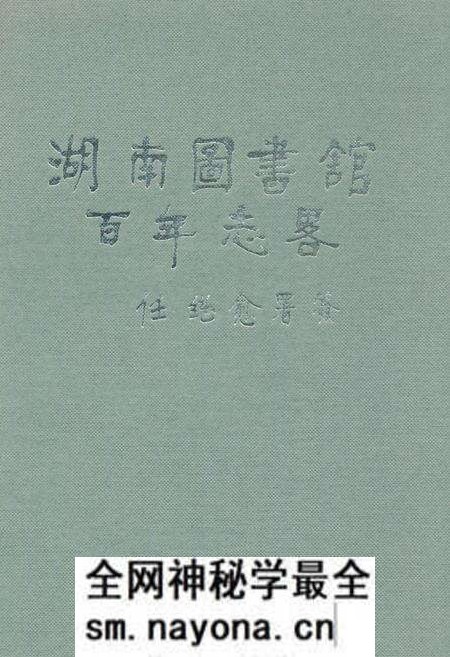 湖南圖書館
百年志畧
任继愈署簽
全网神秘学最全
sm.nayona.cn